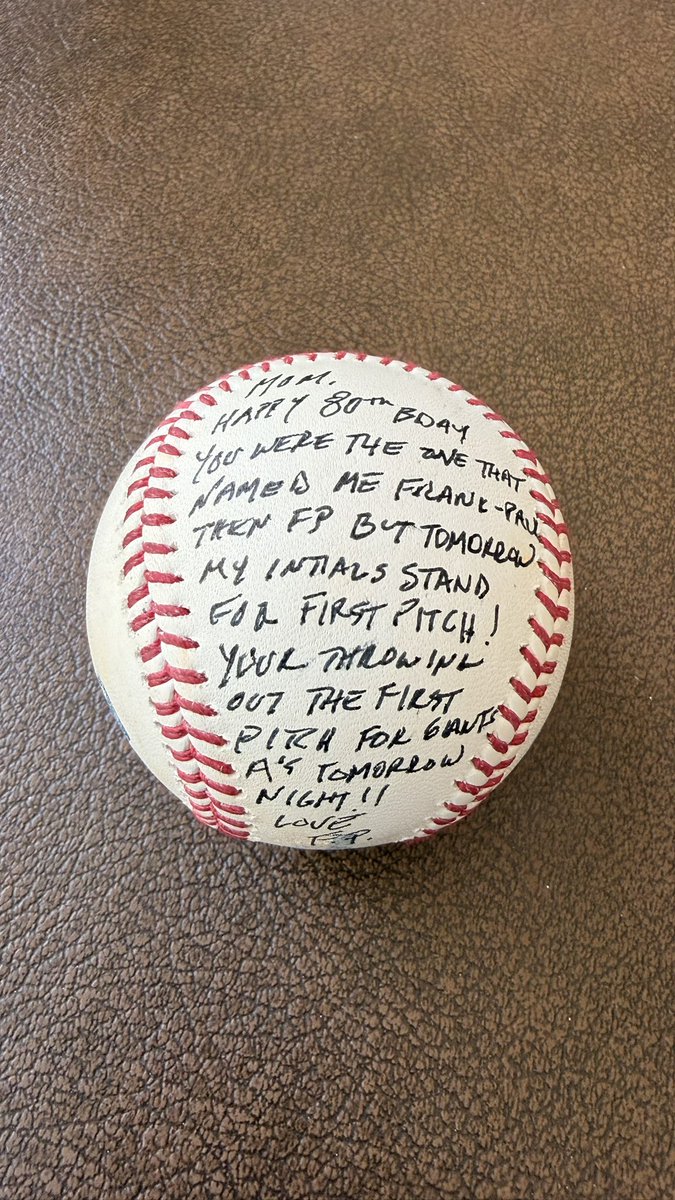 MOM.
HAPPY 80TH BDAY
YOU WERE THE ONE THAT
NAMED ME FRANK-PAUL
THEN FP BUT TOMORROW
MY INTIALS STAND
FOR FIRST PITCH!
YOUR THROWING
OUT THE FIRST
PITCH FOR GIANTS
A'S TOMORROW
NIGHT!!
LOVE
F.P.